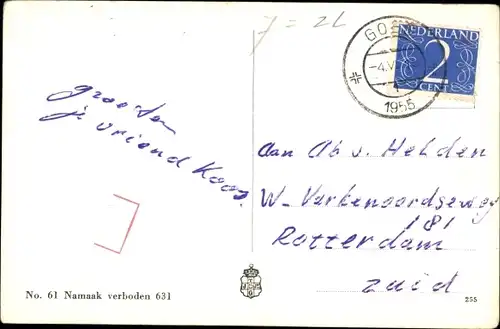 J = 2L
GOE
-4.V
1
1955
NEDERLAND
2
CENT
groeten
je vriend Koos.
Aan Ab v. Helden
W-Varkenoordseweg
181
Rotterdam
zuid
No. 61 Namaak verboden 631
255